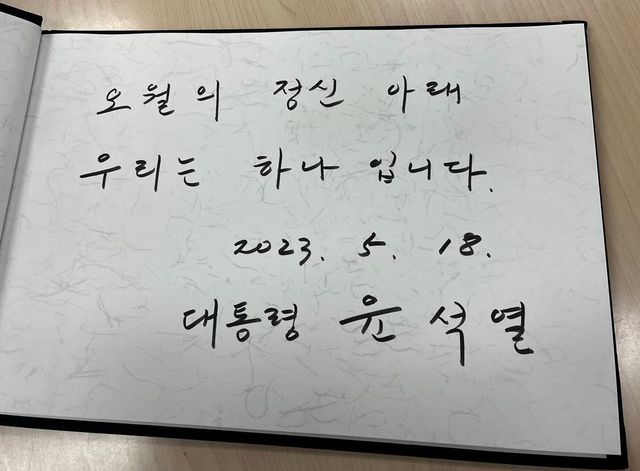 오월의 정신 아래
우리는 하나 입니다.
2023. 5. 18.
대통령 윤석열